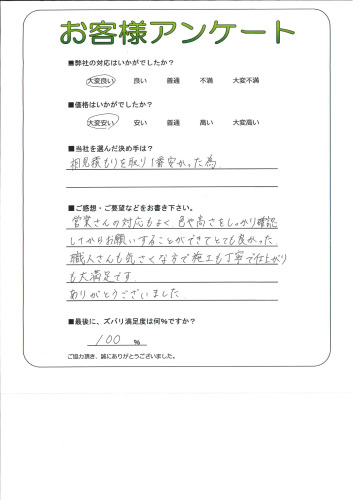 お客様アンケート
■弊社の対応はいかがでしたか?
大変良い 良い 普通 不満 大変不満
■価格はいかがでしたか?
大変安い 安い 普通 高い 大変高い
■当社を選んだ決め手は?
相見積もりを取り1番安かった為
■ご感想・ご要望などをお書き下さい。
営業さんの対応もよく、色や高さをしっかり確認
してからお願いすることができてとても良かった。
職人さんも気さくな方で施工も丁寧で仕上がり
も大満足です。
ありがとうございました。
■最後に、ズバリ満足度は何%ですか?
100 %
ご協力頂き、誠にありがとうございました。